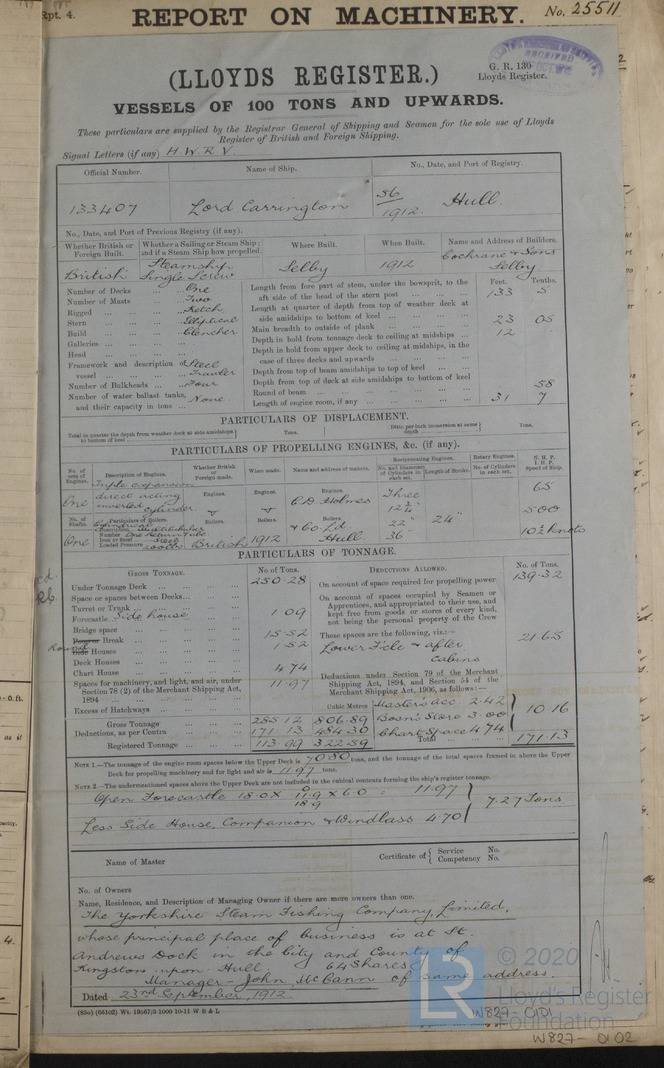 Rpt. 4.
REPORT ON MACHINERY.
No. 25511
G. R. 130
Lloyds Register.
(LLOYDS REGISTER.)
VESSELS OF 100 TONS AND UPWARDS.
These particulars are supplied by the Registrar General of Shipping and Seamen for the sole use of Lloyds
Register of British and Foreign Shipping.
Signal Letters (if any) H.W.R.V.
Official Number. Name of Ship. No., Date, and Port of Registry.
133407 Lord Carrington 36/1912. Hull.
No., Date, and Port of Previous Registry (if any).
Whether British or Foreign Built. Whether a Sailing or Steam Ship; and if a Steam Ship how propelled. Where Built. When Built. Name and Address of Builders.
British Steamship Single Screw Selby 1912 Cochrane & Sons Selby
Number of Decks One
Number of Masts Two
Rigged Ketch
Stern Elliptical
Build Clencher
Galleries
Head
Framework and description of vessel Steel Trawler
Number of Bulkheads Four
Number of water ballast tanks, and their capacity in tons None
Feet. Tenths.
Length from fore part of stem, under the bowsprit, to the aft side of the head of the stern post 133 5
Length at quarter of depth from top of weather deck at side amidships to bottom of keel
Main breadth to outside of plank 23 05
Depth in hold from tonnage deck to ceiling at midships 12
Depth in hold from upper deck to ceiling at midships, in the case of three decks and upwards
Depth from top of beam amidships to top of keel
Depth from top of deck at side amidships to bottom of keel
Round of beam 58
Length of engine room, if any 31 7
PARTICULARS OF DISPLACEMENT.
Total to quarter the depth from weather deck at side amidships to bottom of keel Tons. Ditto per inch immersion at same depth Tons.
PARTICULARS OF PROPELLING ENGINES, &c. (if any).
No. of sets of Engines. Description of Engines. Whether British or Foreign made. When made. Name and address of makers. Reciprocating Engines. No. and Diameter of Cylinders in each set. Length of Stroke. Rotary Engines. No. of Cylinders in each set. N. H. P. I. H. P. Speed of Ship.
One Triple expansion direct acting inverted cylinder Engines. Engines. Engines. C.D. Holmes Three 12½" 65
No. of Shafts. Particulars of Boilers. Boilers. Boilers. Boilers. & Co. Ld 22" 24" 500
One Description Cylindrical Number One Iron or Steel Steel Loaded Pressure 200lbs British 1912 Hull 36 10½ knots
PARTICULARS OF TONNAGE.
GROSS TONNAGE. No of Tons.
Under Tonnage Deck 250.28
Space or spaces between Decks
Turret or Trunk
Forecastle Side house 1.09
Bridge space
Poop or Break 15.52
Round Side Houses 1.52
Deck Houses
Chart House 4.74
Spaces for machinery, and light, and air, under Section 78 (2) of the Merchant Shipping Act, 1894 11.97
Excess of Hatchways Cubic Metres
Gross Tonnage 285.12 806.89
Deductions, as per Contra 171.13 484.30
Registered Tonnage 113.99 322.59
DEDUCTIONS ALLOWED. No. of Tons.
On account of space required for propelling power 139.32
On account of spaces occupied by Seamen or Apprentices, and appropriated to their use, and kept free from goods or stores of every kind, not being the personal property of the Crew
These spaces are the following, viz.:—
Lower F'cle & after Cabins 21.65
Deductions under Section 79 of the Merchant Shipping Act, 1894, and Section 54 of the Merchant Shipping Act, 1906, as follows:—
Master's acc. 2.42
Bosn's Store 3.00 10.16
Chart Space 4.74
Total 171.13
NOTE 1.—The tonnage of the engine room spaces below the Upper Deck is 70.80 tons, and the tonnage of the total spaces framed in above the Upper
Deck for propelling machinery and for light and air is 11.97 tons.
NOTE 2.—The undermentioned spaces above the Upper Deck are not included in the cubical contents forming the ship's register tonnage.
Open Forecastle 18.0 x 0/11.9/18.9 x 6.0 = 11.97
7.27 Tons
Less Side House, Companion & Windlass 4.70
Name of Master Certificate of { Service No. Competency No.
No. of Owners
Name, Residence, and Description of Managing Owner if there are more owners than one.
The Yorkshire Steam Fishing Company, Limited,
whose principal place of business is at St.
Andrews Dock in the City and County of
Kingston upon Hull. 64 Shares
Manager - John McCann of same address.
Dated 23rd September 1912
(85o) (66102) Wt. 19567/3 1000 10-11 W B & L
© 2020
LR
Lloyd's Register
Foundation
W827-0101
W827-0102